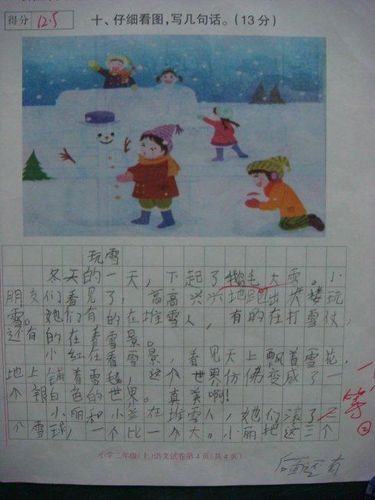 得分 12.5
十、仔细看图,写几句话。(13分)
玩雪
冬天的一天,下起了鹅毛大雪。小
朋友们看见了,高高兴兴地跑出大楼玩
雪。她们有的在堆雪人,有的在打雪仗,
还有的在看雪景。
小红在看雪景,看见天上飘着雪花,
地上铺着雪毯,这个世界仿佛变成了一
个银白色的世界。真美啊!
小丽和小兰在堆雪人,她们滚了
个雪球,一个比一个大。小丽把这三个
一等
小学二年级(上)语文试卷第4页(共4页)
后面还有